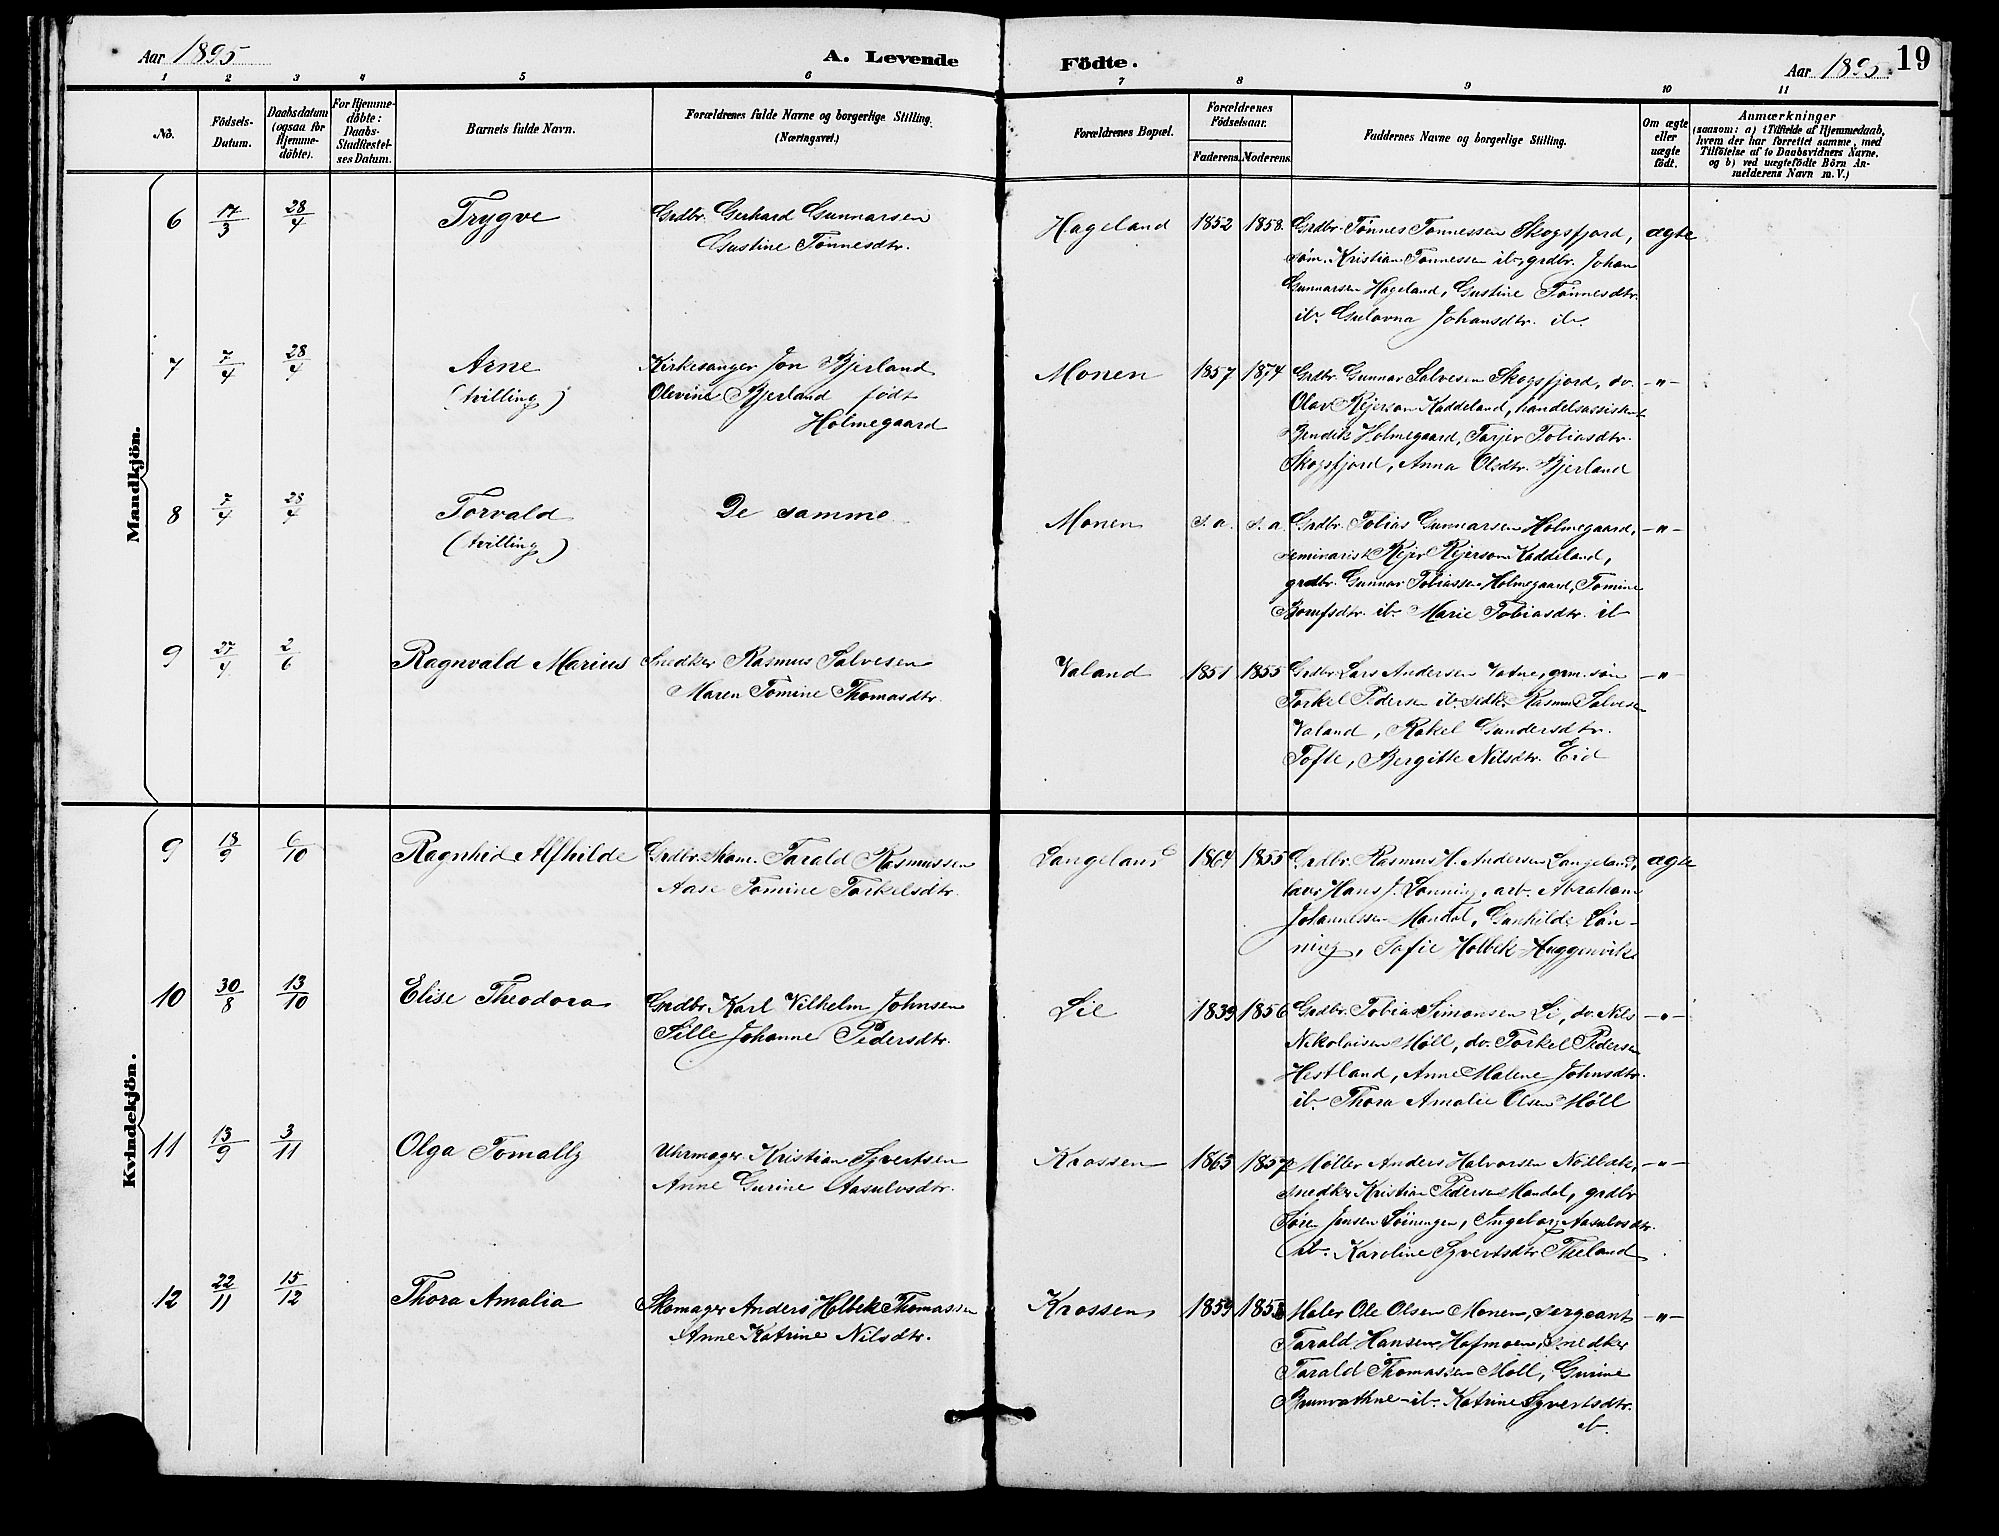 Aar 1895 A. Levende Födte. Aar 1895. 19
1 2 3 4 5 6 7 8 9 10 11
No. Födsels-Datum. Daabsdatum (ogsaa for Hjemme-döbte). For Hjemme-döbte: Daabs-Stadfestel-ses Datum. Barnets fulde Navn. Forældrenes fulde Navne og borgerlige Stilling. (Næringsvei.) Forældrenes Bopæl. Forældrenes Födselsaar. Faderens. Moderens. Faddernes Navne og borgerlige Stilling. Om ægte eller uægte födt. Anmærkninger (saasom: a) i Tilfælde af Hjemmedaab, hvem der har forrettet samme, med Tilföielse af to Daabsvidners Navne, og b) ved uægtefödte Börn An-melderens Navn m. V.)
Mandkjön.
6 17/3 28/4 Trygve Grdbr. Gerhard Gunnarsen Hageland 1852 1858. Grdbr. Tønnes Tønnessen Skogsfjord, ægte
Gustine Tønnesdtr. søn. Kristian Tønnessen ib., grdbr. Johan
Gunnarsen Hageland, Gustine Tønnesdtr.
ib. Gulovna Johansdtr. ib.
7 7/4 28/4 Arne Kirkesanger Jon Bjerland Monen 1857 1874 Grdbr. Gunnar Salvesen Skogsfjord, do. -"-
(tvilling) Olevine Bjerland født Olav Rejerson Kaddeland, handelsassistent
Holmegaard Bendik Holmegaard, Tarjer Tobiasdtr.
Skogsfjord, Anna Olsdtr. Bjerland
8 7/4 28/4 Torvald De samme Monen s. a. s. a. Grdbr. Tobias Gunnarsen Holmegaard, -"-
(tvilling) seminarist Rejer Rejerson Kaddeland,
grdbr. Gunnar Tobiassen Holmegaard, Tomine
ib. Marie Tobiasdtr. ib
9 27/4 2/6 Ragnvald Marius Snedker Rasmus Salvesen Valand 1851 1855 Grdbr. Lars Andersen Vatne, grm. søn -"-
Maren Tomine Thomasdtr. Torkel Pedersen ib. Rasmus Salvesen
Valand, Rakel Gundersdtr.
Tofte, Bergitte Nilsdtr. Eid
Kvindekjön.
9 18/9 6/10 Ragnhid Alfhilde Grdbr. Tarald Rasmussen Langeland 1864 1855 Grdbr. Rasmus H. Andersen Langeland, ægte
Aase Tomine Torkelsdtr. Hans J. Lønning, arb. Abraham
Johannessen Mandal, Gunhilde Løn-
ning, Sofie Holbek Huggenvik
10 30/8 13/10 Elise Theodora Grdbr. Karl Vilhelm Johnsen Lie 1839 1856 Grdbr. Tobias Simonsen Li, do. Nils -"-
Sille Johanne Pedersdtr. Nikolaisen Møll, do. Torkel Pedersen
Hestland, Anne Malene Johnsdtr.
ib. Thora Amalie Olsen Møll
11 13/9 3/11 Olga Tomally Uhrmager Kristian Syvertsen Krossen 1863 1857 Møller Anders Halvorsen Nøilbak, -"-
Anne Gurine Aasulvsdtr. snedker Kristian Pedersen Mandal, grdbr
Søren Jensen Løiningen, Ingeborg Aasulvsdtr.
ib. Karoline Syvertsdtr Theland
12 22/11 15/12 Thora Amalia Skomager Anders Holbek Thomassen Krossen 1859 1853 Maler Ole Olsen Monen, sergeant -"-
Anne Katrine Nilsdtr. Tarald Hansen Hafmoen, snedker
Tarald Thomassen Møll, Gurine
Brunvathne ib. Katrine Syvertsdtr.
ib.